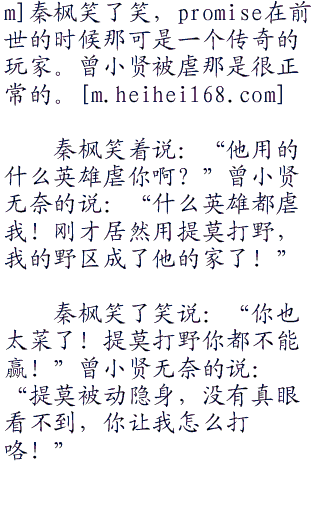 m]秦枫笑了笑，promise在前
世的时候那可是一个传奇的
玩家。曾小贤被虐那是很正
常的。[m.heihei168.com]
秦枫笑着说：“他用的
什么英雄虐你啊？”曾小贤
无奈的说：“什么英雄都虐
我！刚才居然用提莫打野，
我的野区成了他的家了！”
秦枫笑了笑说：“你也
太菜了！提莫打野你都不能
赢！”曾小贤无奈的说：
“提莫被动隐身，没有真眼
看不到，你让我怎么打
咯！”